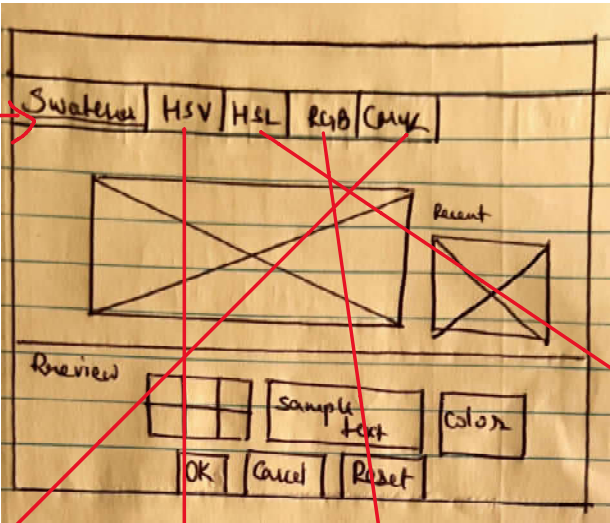 Swatches HSV HSL RGB CMYK
Recent
Preview
sample
text
color
OK Cancel Reset